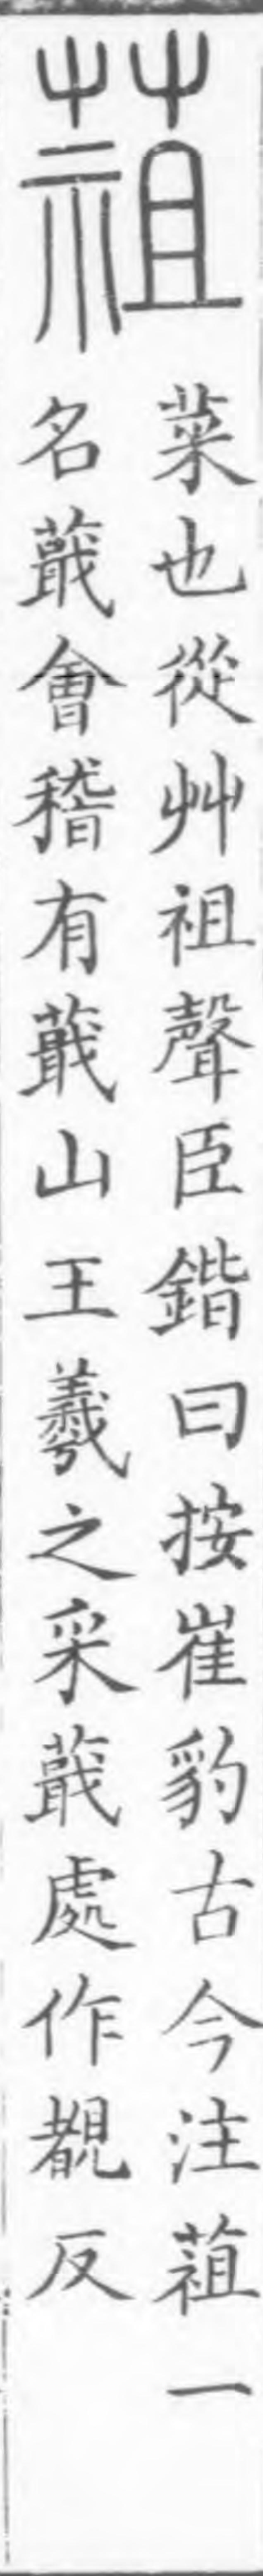 蒩
菜也從艸祖聲臣鍇曰按崔豹古今注蒩一
名蕺會稽有蕺山王羲之采蕺處作覩反